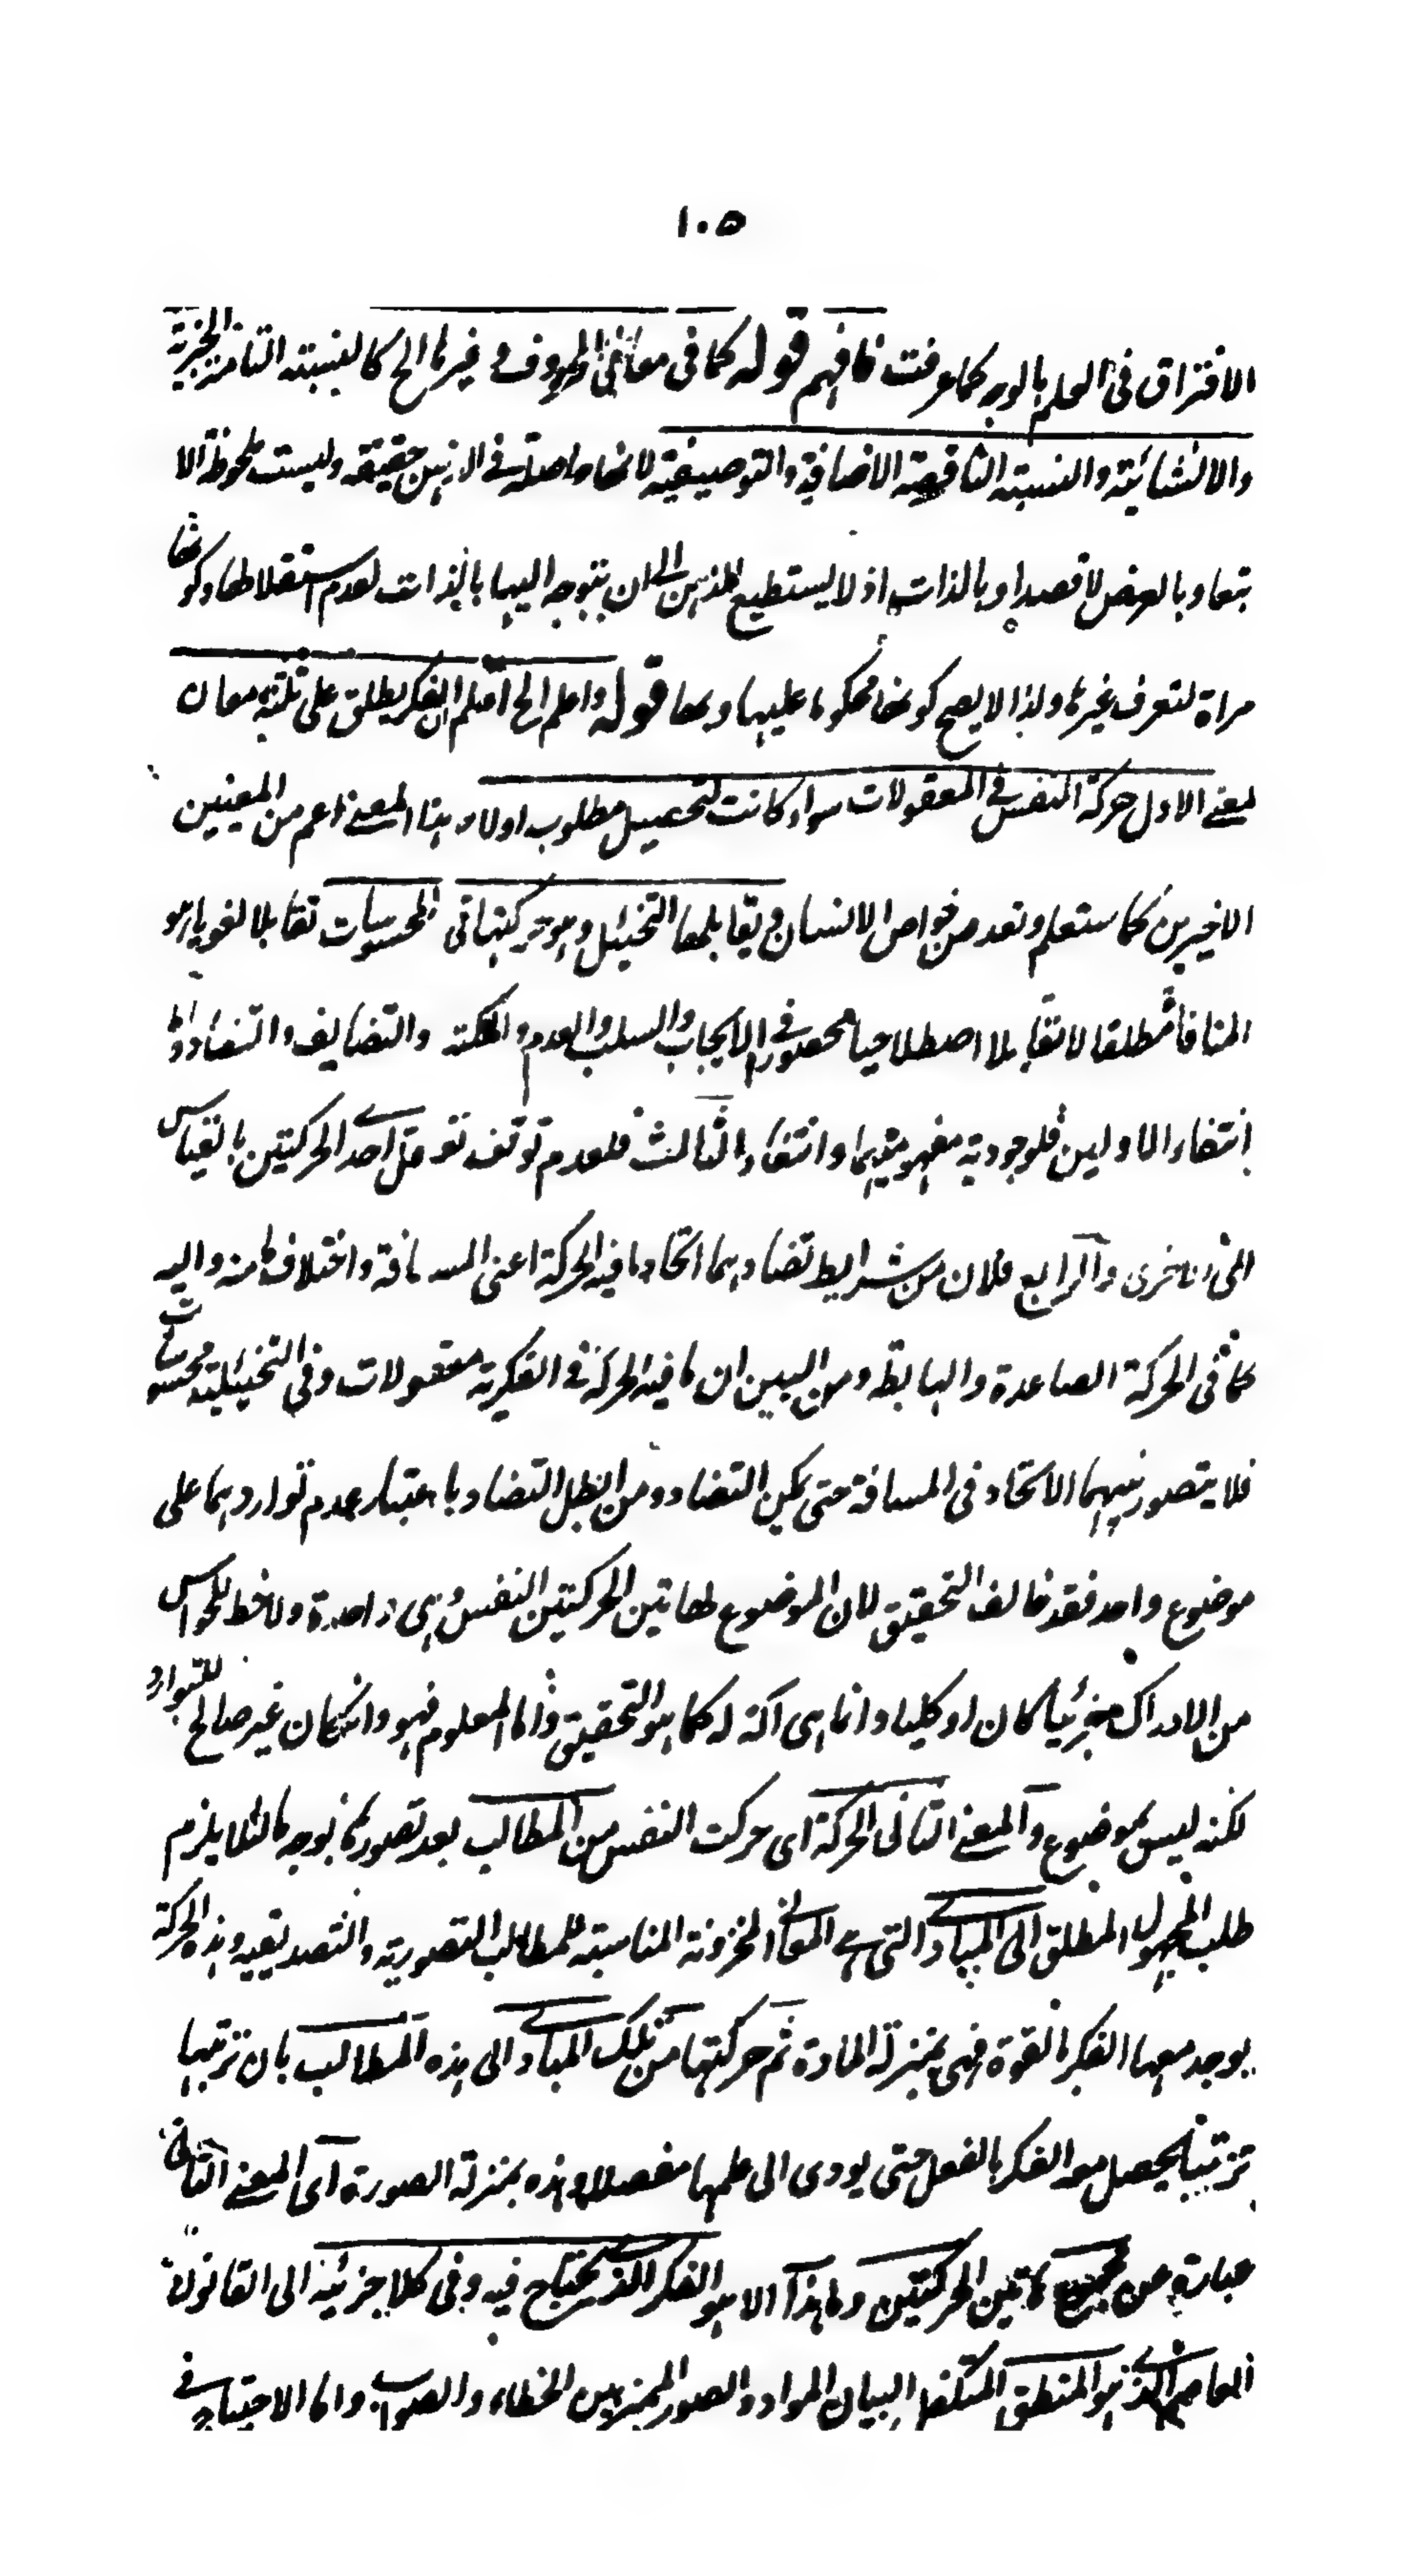 ١٠٥
الافتراق فى العلم بالوجه كما عرفت فافهم قوله كما فى معانى الحروف و غيرها الخ كالنسبته التامته الخبرية
والانشائية والنسبته الناقصة الاضافية والتوصيفية لانها حاصلة فى الذهن حقيقة وليست ملحوظة الا
تبعا وبالعرض لا قصدا وبالذات اذ لا يستطيع الذهن الى ان يتوجه اليها بالذات لعدم استقلالها وكونها
مراة لتعرف غيرها ولهذا لا يصح كونها محكوما عليها وبها قوله واعلم الخ اعلم ان الفكر يطلق على ثلثة معان
لمعنى الاول حركة النفس فى المعقولات سواء كانت لتحصيل مطلوب اولا وهذا المعنى اعم من المعنيين
الاخيرين كما ستعلم وتعد من خواص الانسان ويقابلها التخئيل وهو حركتها فى المحسوسات تقابلا لغويا هو
المنافاة مطلقا لا تقابلا اصطلاحيا محصورا فى الايجاب والسلب والعدم والملكة والتضايف والتضاد واما
انتفاء الاولين فلوجودية مفهوميهما وانتفاء الثالث فلعدم توقف تعقل احدى الحركتين بالقياس
الى الاخرى والرابع فلان من شرايط تضادهما اتحاد ما فيه الحركة اعنى المسافة واختلاف ما منه واليه
كما فى الحركة الصاعدة والهابطة ومن البين ان ما فيه الحركة فى الفكرية معقولات وفى التخئيلية محسوسات
فلا يتصور فيهما الاتحاد فى المسافة حتى يمكن التضاد ومن ابطل التضاد باعتبار عدم تواردهما على
موضوع واحد فقد خالف التحقيق لان الموضوع لهاتين الحركتين النفس وهى واحدة ولاحظ للحواس
من الادراك جزئيا كان او كليا وانما هى آلة له كما هو التحقيق واما المعلوم فهو وانكان غير صالح للتوارد
لكنه ليس بموضوع والمعنى الثانى الحركة اى حركت النفس من المطالب بعد تصورها بوجه ما لئلا يلزم
طلب المجهول المطلق الى المبادى التى هى المعانى المخزونة المناسبته للمطالب التصورية والتصديقيه وهذه الحركة
يوجد معها الفكر بالقوة فهى بمنزلة المادة ثم حركتها من تلك المبادى الى هذه المطالب بان ترتبها
ترتيبا يحصل معه الفكر بالفعل حتى يودى الى علمها مفصلا وهذه بمنزلة الصورة اى المعنى الثانى
عبارة عن مجموع هاتين الحركتين وما هذا الا هو الفكر الذى يحتاج فيه وفى كلا جزئيه الى القانون
العاصم الذى هو المنطق المتكفل لبيان المواد والصور المميز بين الخطاء والصواب واما الاحتياج فى